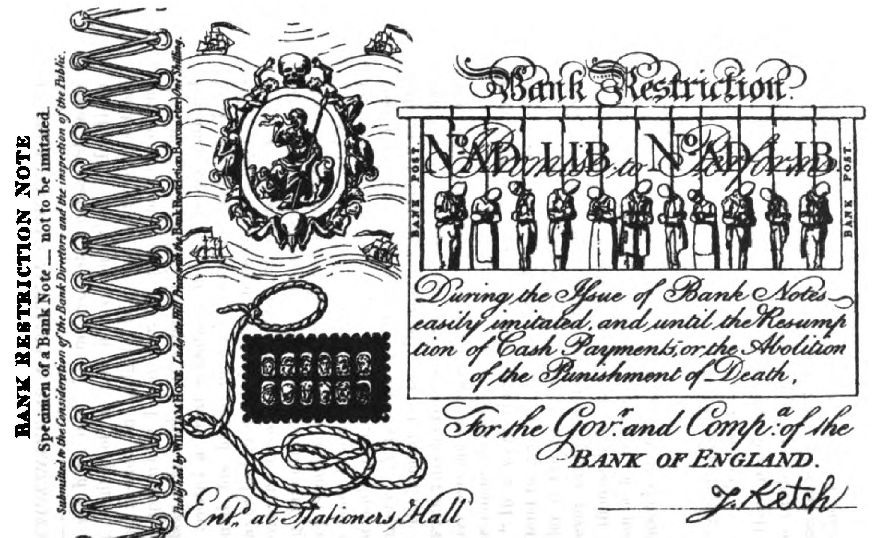 BANK RESTRICTION NOTE
Specimen of a Bank Note — not to be imitated.
Submitted to the Consideration of the Bank Directors and the inspection of the Public.
Published by WILLIAM HONE, Ludgate Hill. Price with the Bank Restriction Barometer One Shilling.
Bank Restriction.
Nº AD LIB. Nº AD LIB.
Promise to Perform
BANK POST.
BANK POST.
During the Issue of Bank Notes
easily imitated, and until the Resump
tion of Cash Payments, or the Abolition
of the Punishment of Death,
For the Govʳ. and Compᵃ. of the
BANK OF ENGLAND.
J. Ketch
Entᵈ. at Stationers Hall